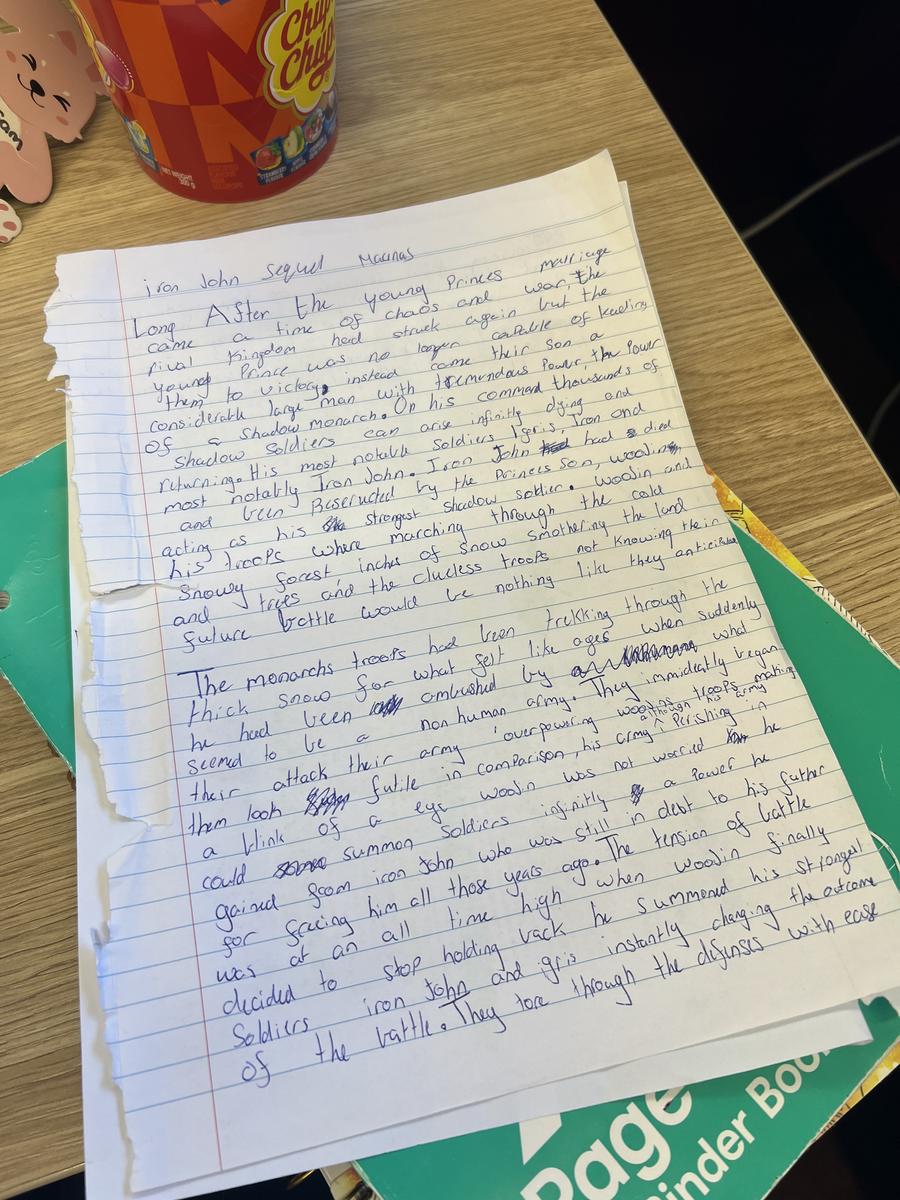 Sam
Chupa
Chups
NET WEIGHT
300 g
STRAWBERRY
FLAVOUR
iron John sequel Macinas
Long After the young Princes marriage
came a time of chaos and war, the
rival Kingdom had struck again but the
young Prince was no longer capable of leading
them to victory, instead came their son a
considerable large man with tremendous Power, the Power
of a shadow monarch. On his command thousands of
Shadow Soldiers can arise infinitly dying and
returning. His most notable soldiers Igris, Iron and
most notably Iron John. Iron John had died
and been Reseructed by the Princes son, woojin,
acting as his strongest shadow soldier. woojin and
his troops where marching through the cold
snowy forest inches of snow smothering the land
and trees and the clueless troops not knowing their
future battle would be nothing like they anticipated
The monarchs troops had been trekking through the
thick snow for what felt like ages when suddenly
he had been ambushed by what
seemed to be a non human army. They immideatly began
their attack their army overpowering woojins troops making
them look futile in comparison, although his army his army Perishing in
a blink of a eye woojin was not worried he
could summon soldiers infinitly a Power he
gained from iron John who was still in debt to his father
for freeing him all those years ago. The tension of battle
was at an all time high when woojin finally
decided to stop holding back he summoned his strongest
Soldiers iron John and gris instantly changing the outcome
of the battle. They tore through the defenses with ease
Page
inder Boo